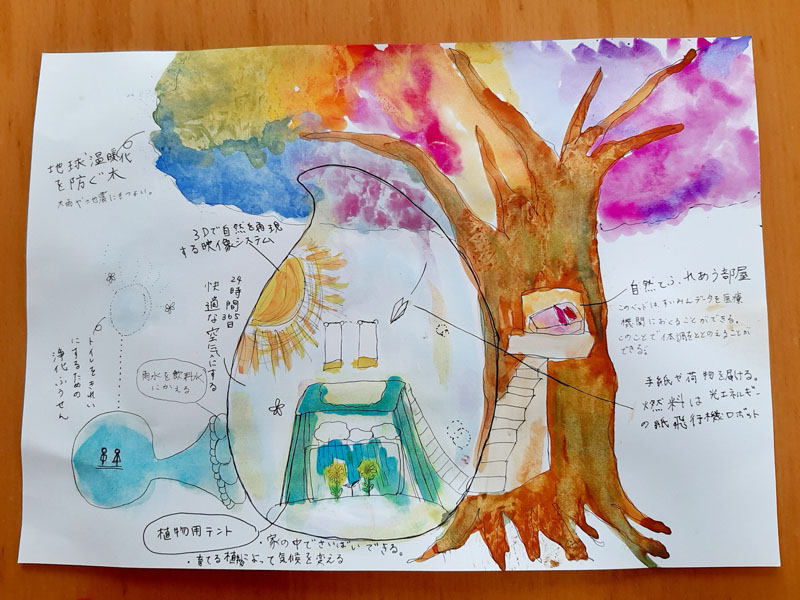 地球温暖化
を防ぐ木
大雨や地震にもつよい。
3Dで自然を再現
する映像システム
24時間365日
快適な空気にする
雨水を飲料水
にかえる
トイレをきれい
にするための
浄化ふうせん
自然とふれあう部屋
このベッドは、すいみんデータを医療
機関におくることができる。
このことで体調をととのえることが
できる。
手紙や荷物を届ける。
燃料は光エネルギー
の紙飛行機ロボット
植物用テント
・家の中でさいばいできる。
・育てる植物によって気候を変える